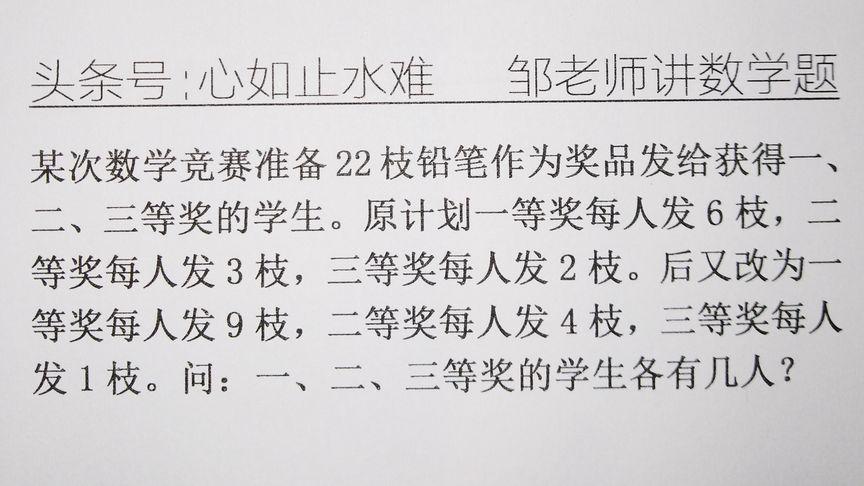 头条号:心如止水难 邹老师讲数学题
某次数学竞赛准备22枝铅笔作为奖品发给获得一、
二、三等奖的学生。原计划一等奖每人发6枝，二
等奖每人发3枝，三等奖每人发2枝。后又改为一
等奖每人发9枝，二等奖每人发4枝，三等奖每人
发1枝。问：一、二、三等奖的学生各有几人？